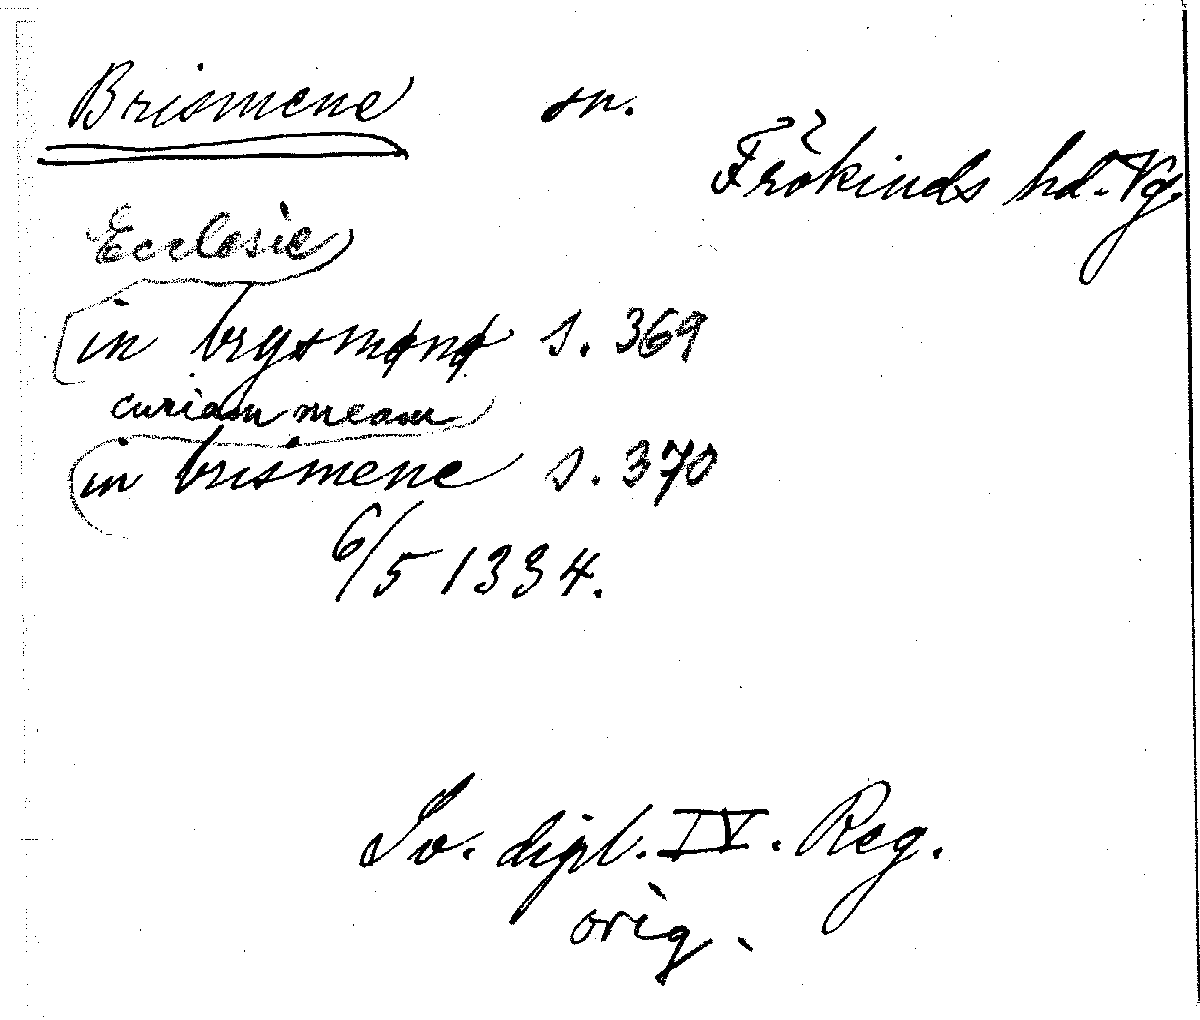 Brismene sn.
Frökinds hd. Vg.
Ecclesie
in brysmønø s. 369
curiam meam
in brismene s. 370
6/5 1334.
Sv. dipl. IV. Reg.
orig.